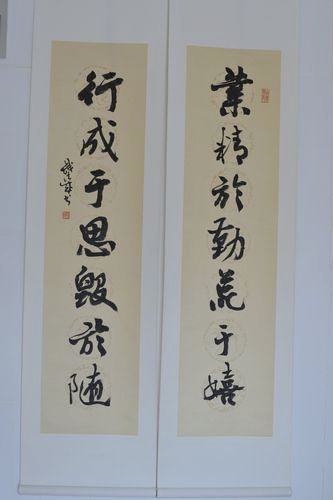 業精於勤荒于嬉
行成于思毀於随